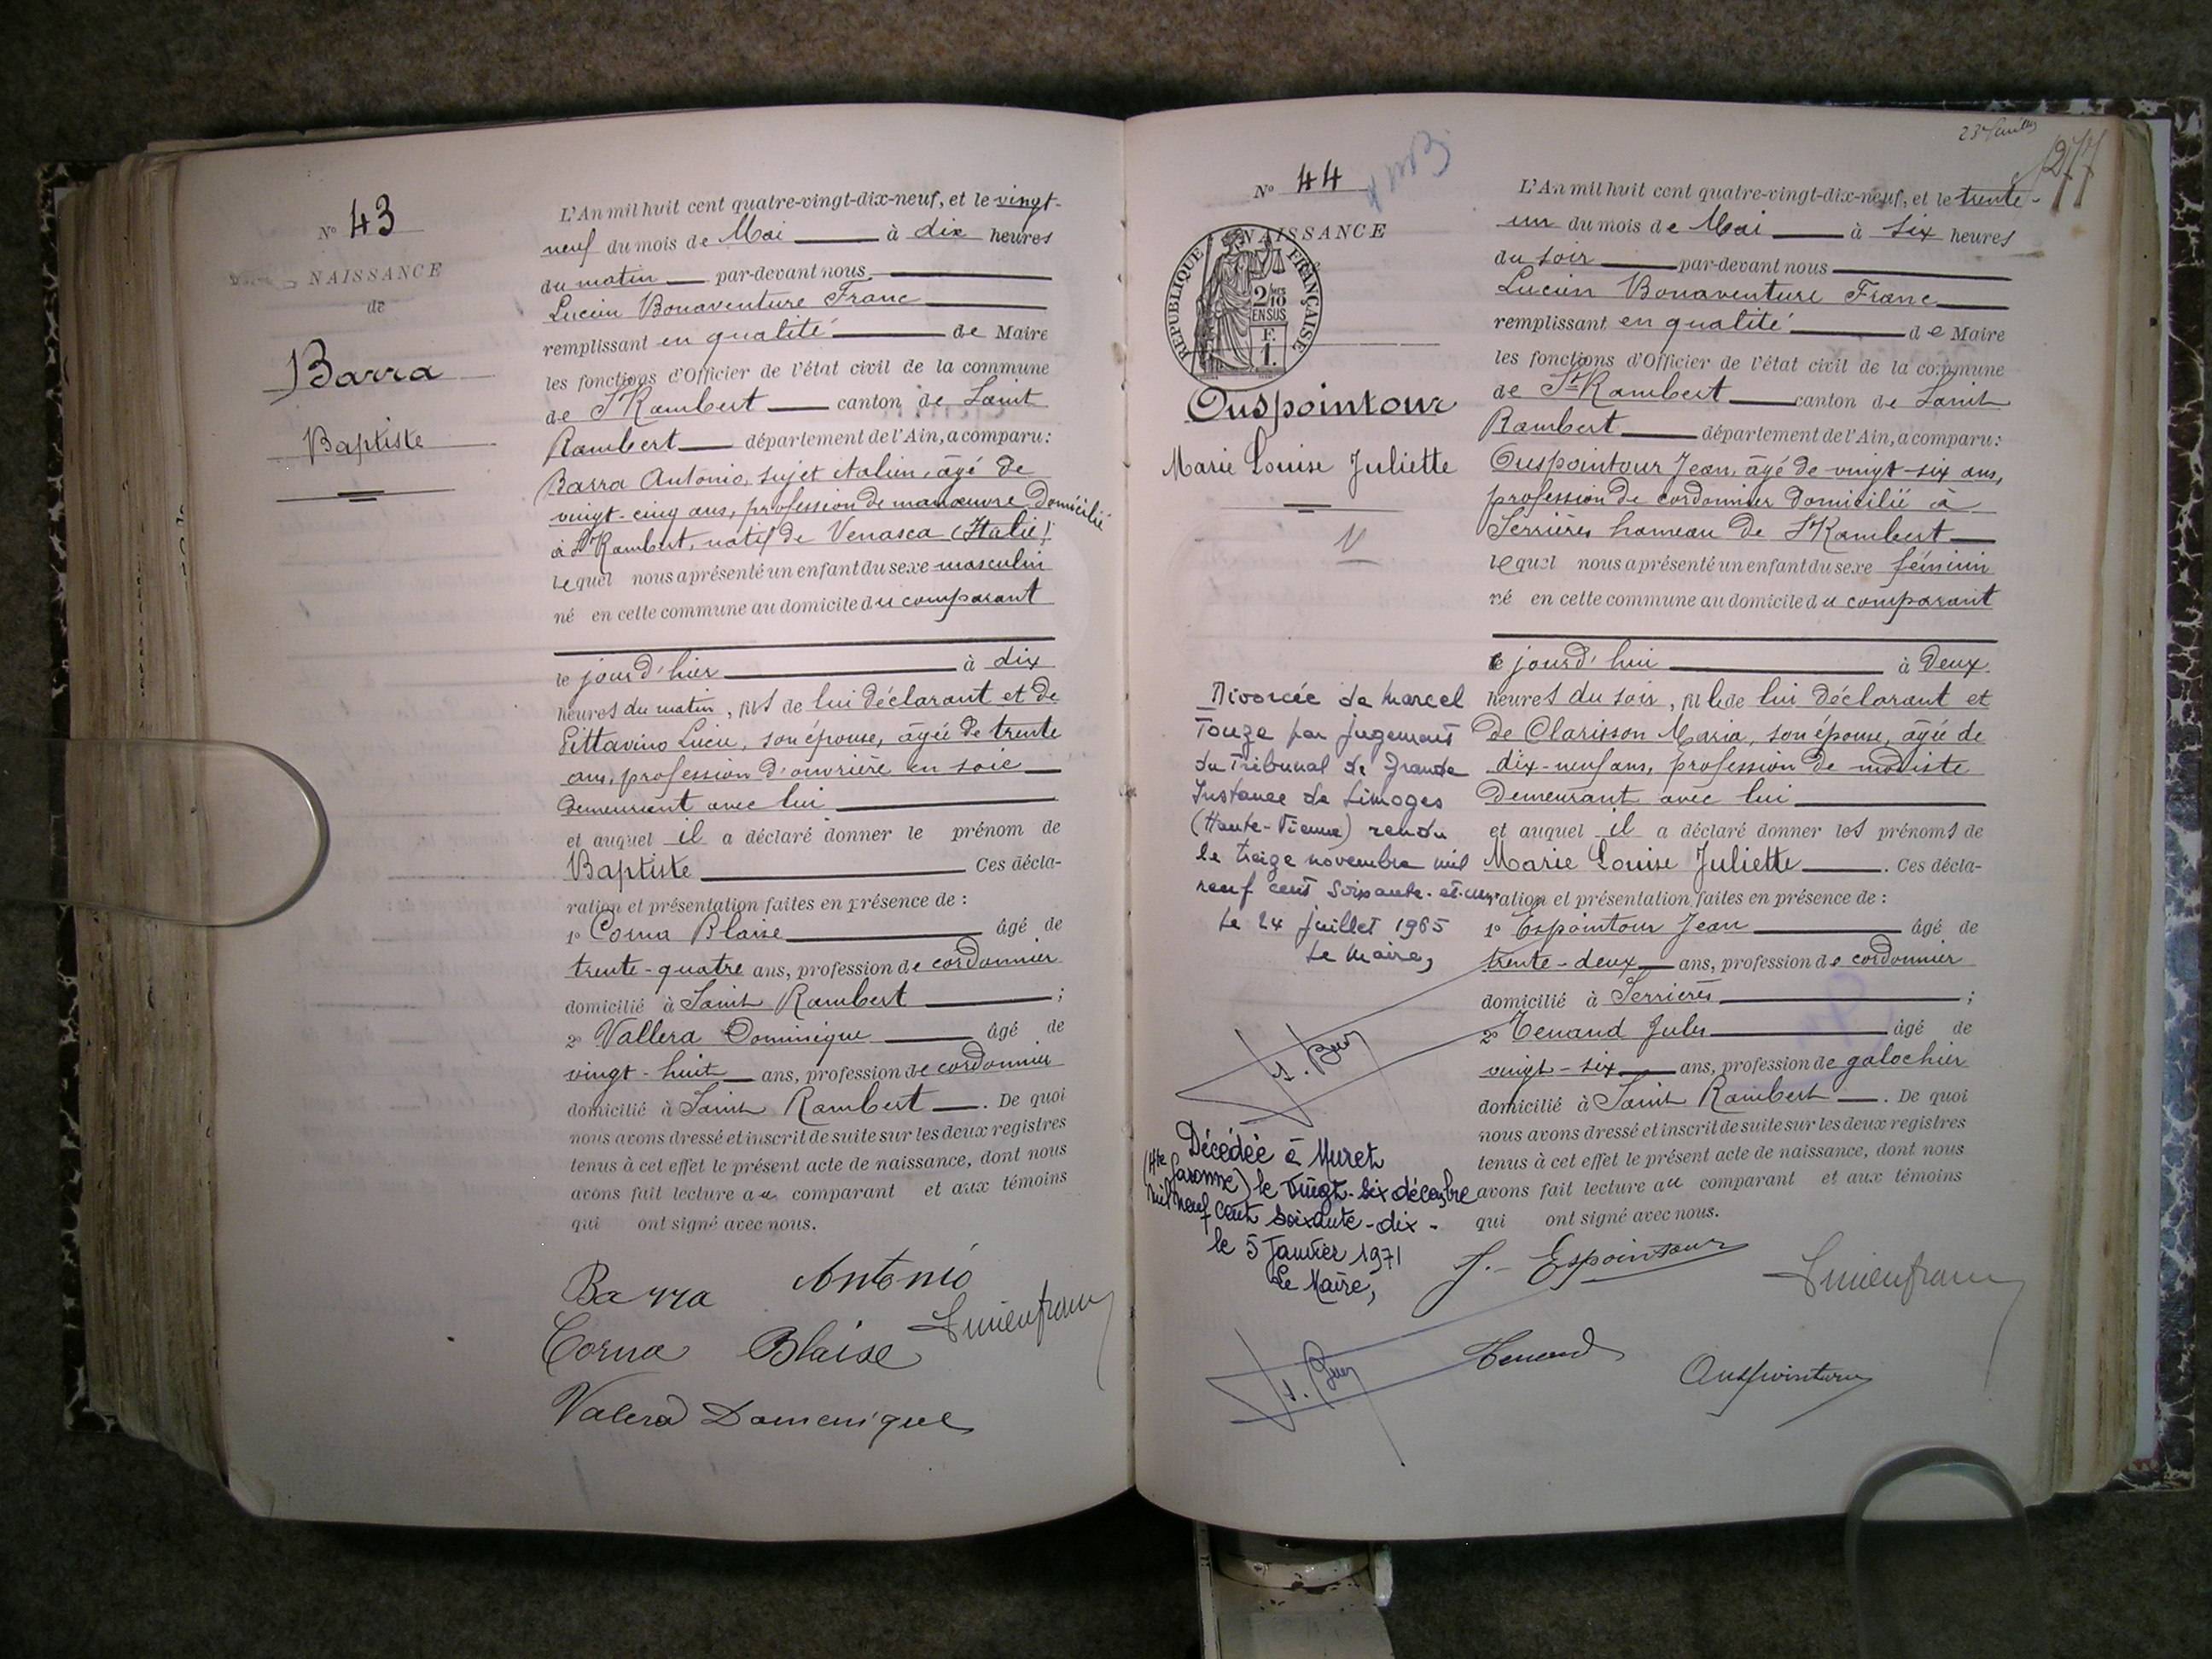 N° 43
NAISSANCE
de
Barra
Baptiste
L'An mil huit cent quatre-vingt-dix-neuf, et le vingt-
neuf du mois de Mai à dix heures
du matin par-devant nous
Lucien Bonaventure Franc
remplissant en qualité de Maire
les fonctions d'Officier de l'état civil de la commune
de St Rambert canton de Saint
Rambert département de l'Ain, a comparu :
Barra Antonio, sujet italien, âgé de
vingt-cinq ans, profession de manœuvre domicilié
à St Rambert, natif de Venasca (Italie)
lequel nous a présenté un enfant du sexe masculin
né en cette commune au domicile du comparant
le jour d'hier à dix
heures du matin, fils de lui déclarant et de
Gittavino Lucie, son épouse, âgée de trente
ans, profession d'ouvrière en soie
demeurant avec lui
et auquel il a déclaré donner le prénom de
Baptiste Ces décla-
ration et présentation faites en présence de :
1° Corna Blaise âgé de
trente-quatre ans, profession de cordonnier
domicilié à Saint Rambert ;
2° Vallera Dominique âgé de
vingt-huit ans, profession de cordonnier
domicilié à Saint Rambert. De quoi
nous avons dressé et inscrit de suite sur les deux registres
tenus à cet effet le présent acte de naissance, dont nous
avons fait lecture au comparant et aux témoins
qui ont signé avec nous.
Barra Antonio
Lucien franc
Corna Blaise
Valera Domenique
N° 44
NAISSANCE
REPUBLIQUE FRANÇAISE
2/10
EN SUS
F.
1.
Ouspointour
Marie Louise Juliette
Divorcée de Marcel
Touze par jugement
du Tribunal de Grande
Instance de Limoges
(Haute-Vienne) rendu
le treize novembre mil
neuf cent soixante-et-un
Le 24 juillet 1965
Le Maire,
Décédée à Muret
(Hte Garonne) le vingt-six décembre
mil neuf cent soixante-dix-
le 5 Janvier 1971
Le Maire,
277
L'An mil huit cent quatre-vingt-dix-neuf, et le trente-
un du mois de Mai à six heures
du soir par-devant nous
Lucien Bonaventure Franc
remplissant en qualité de Maire
les fonctions d'Officier de l'état civil de la commune
de St Rambert canton de Saint
Rambert département de l'Ain, a comparu :
Ouspointour Jean, âgé de vingt-six ans,
profession de cordonnier domicilié à
Serrières hameau de St Rambert
lequel nous a présenté un enfant du sexe féminin
né en cette commune au domicile du comparant
le jour d'hui à deux
heures du soir, fille de lui déclarant et
de Clarisson Maria, son épouse, âgée de
dix-neuf ans, profession de modiste
demeurant avec lui
et auquel il a déclaré donner les prénoms de
Marie Louise Juliette. Ces décla-
ration et présentation faites en présence de :
1° Espointour Jean âgé de
trente-deux ans, profession de cordonnier
domicilié à Serrières ;
2° Tenand Jules âgé de
vingt-six ans, profession de galochier
domicilié à Saint Rambert. De quoi
nous avons dressé et inscrit de suite sur les deux registres
tenus à cet effet le présent acte de naissance, dont nous
avons fait lecture au comparant et aux témoins
qui ont signé avec nous.
J. Espointour
Lucien franc
Tenand
Ouspointour